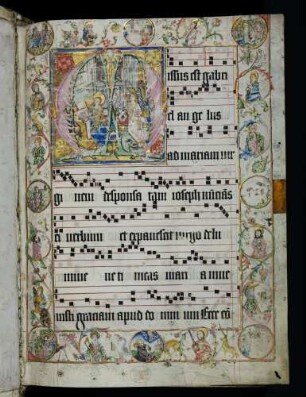 issus est gabri
el an ge lus
ad mariam vir
gi nem desponsa tam ioseph nuncians
ei verbum et expavescit virgo de lu
mine ne ti meas mari a inve
nisti graciam apud do mi num Ecce